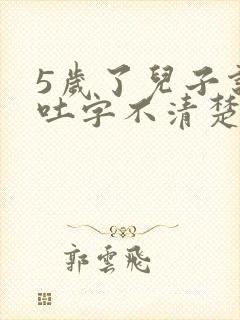 5歲了兒子
吐字不清楚
郭雲飛